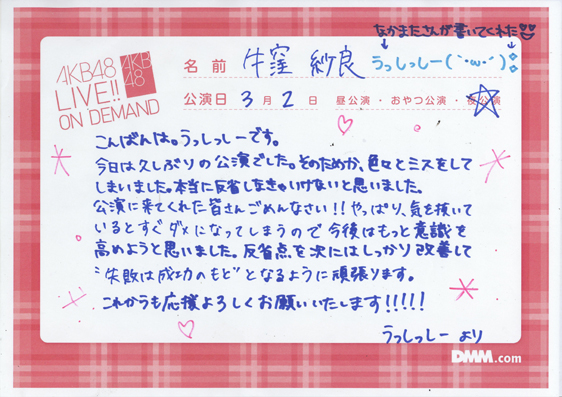 なかまたさんが書いてくれた
AKB48
LIVE!!
ON DEMAND
AKB
48
名前 牛窪 紗良 うっしっしー(`・ω・´)
公演日 3月2日 昼公演・おやつ公演・夜公演
こんばんは。うっしっしーです。
今日は久しぶりの公演でした。そのためか、色々とミスをして
しまいました。本当に反省しなきゃいけないと思いました。
公演に来てくれた皆さんごめんなさい!!やっぱり、気を抜いて
いるとすぐダメになってしまうので今後はもっと意識を
高めようと思いました。反省点を次にはしっかり改善して
"失敗は成功のもと"となるように頑張ります。
これからも応援よろしくお願いいたします!!!!!
うっしっしーより
DMM.com